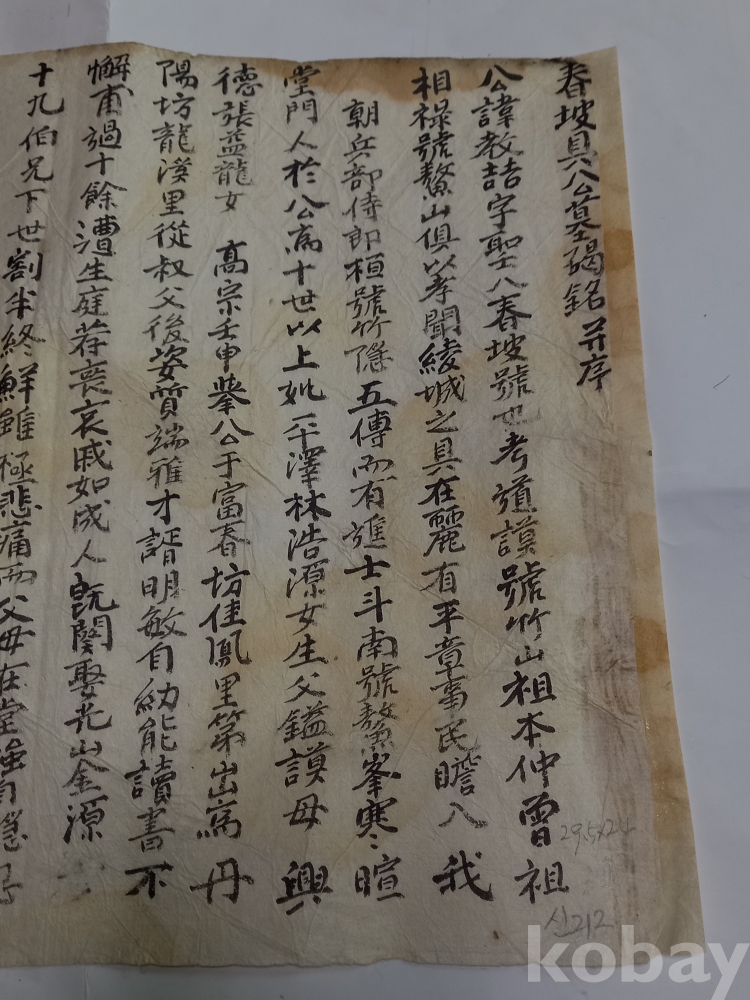 春坡具公墓碣銘 并序
公諱教喆字聖八春坡號也考道謨號竹山祖本仲曾祖
相祿號鰲山俱以孝聞綾城之具在麗有平章事民瞻入我
朝兵部侍郎楨號竹隱五傳而有進士斗南號鰲峯寒暄
堂門人於公爲十世以上妣平澤林浩源女生父鎰謨母 興
德張益龍女 高宗壬申擧公于富春坊佳鳳里第出爲丹
陽坊龍溪里從叔父後姿質端雅才諝明敏自幼能讀書不
懈甫過十餘遭生庭荐喪哀戚如成人旣闋娶光山金源
十九伯兄下世割半終鮮雖極悲痛而父母在堂強自
29.5x24
신212
kobay